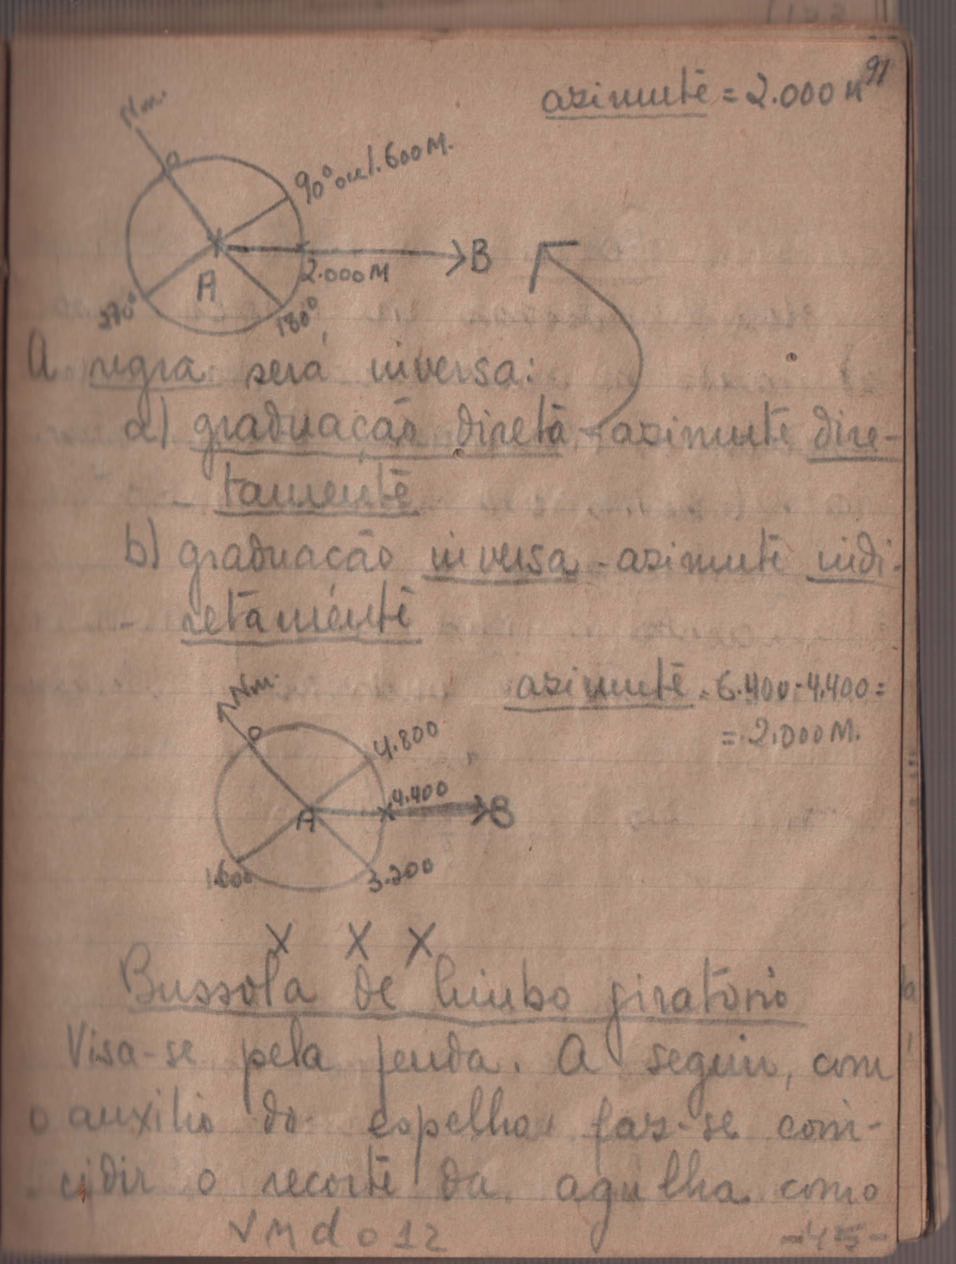 91
azimute = 2.000 M
Nm.
0
90° ou 1.600 M.
A
B
2.000 M
270°
180°
A regra será inversa:
a) graduação direta - azimute dire-
tamente
b) graduação inversa - azimute indi-
retamente
azimute = 6.400 - 4.400 =
= 2.000 M.
Nm.
0
4.800
4.400
A
B
1.600
3.200
X X X
Bussola de limbo giratorio
Visa-se pela fenda. A seguir, com
o auxilio do espelho faz-se coin-
cidir o recorte da agulha como
VMdo12
-45-